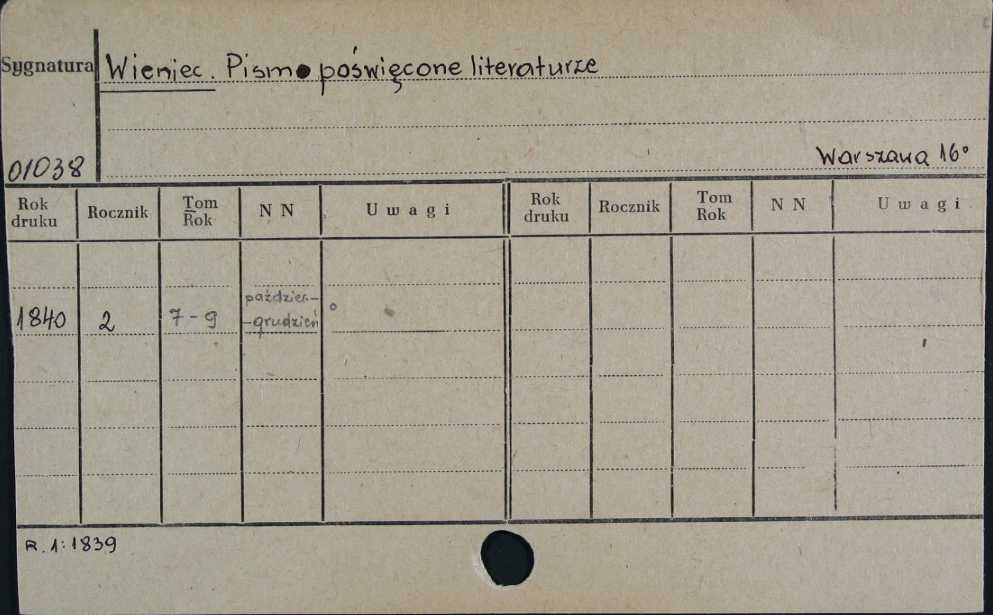 Sygnatura Wieniec. Pismo poświęcone literaturze
01038 Warszawa 16°
Rok druku Rocznik Tom Rok N N Uwagi Rok druku Rocznik Tom Rok N N Uwagi
1840 2 7-9 paździer-
-grudzień °
R. 1: 1839